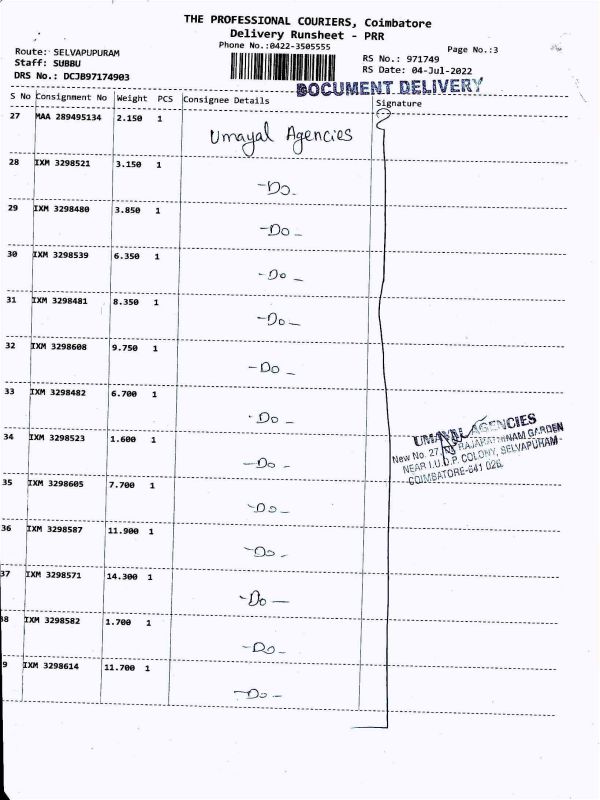 THE PROFESSIONAL COURIERS, Coimbatore
Delivery Runsheet - PRR
Phone No.:0422-3505555
Page No.:3
Route: SELVAPUPURAM
Staff: SUBBU
DRS No.: DCJB97174903
RS No.: 971749
RS Date: 04-Jul-2022
DOCUMENT DELIVERY
S No Consignment No Weight PCS Consignee Details Signature
27 MAA 289495134 2.150 1 Umayal Agencies
28 IXM 3298521 3.150 1 -Do-
29 IXM 3298480 3.850 1 -Do-
30 IXM 3298539 6.350 1 -Do-
31 IXM 3298481 8.350 1 -Do-
32 IXM 3298608 9.750 1 -Do-
33 IXM 3298482 6.700 1 -Do-
34 IXM 3298523 1.600 1 -Do-
35 IXM 3298605 7.700 1 -Do-
36 IXM 3298587 11.900 1 -Do-
37 IXM 3298571 14.300 1 -Do-
38 IXM 3298582 1.700 1 -Do-
9 IXM 3298614 11.700 1 -Do-
UMAYAL AGENCIES
New No. 27, GARDEN
NEAR I.U.D.P. COLONY, SELVAPURAM-
COIMBATORE-641 026.